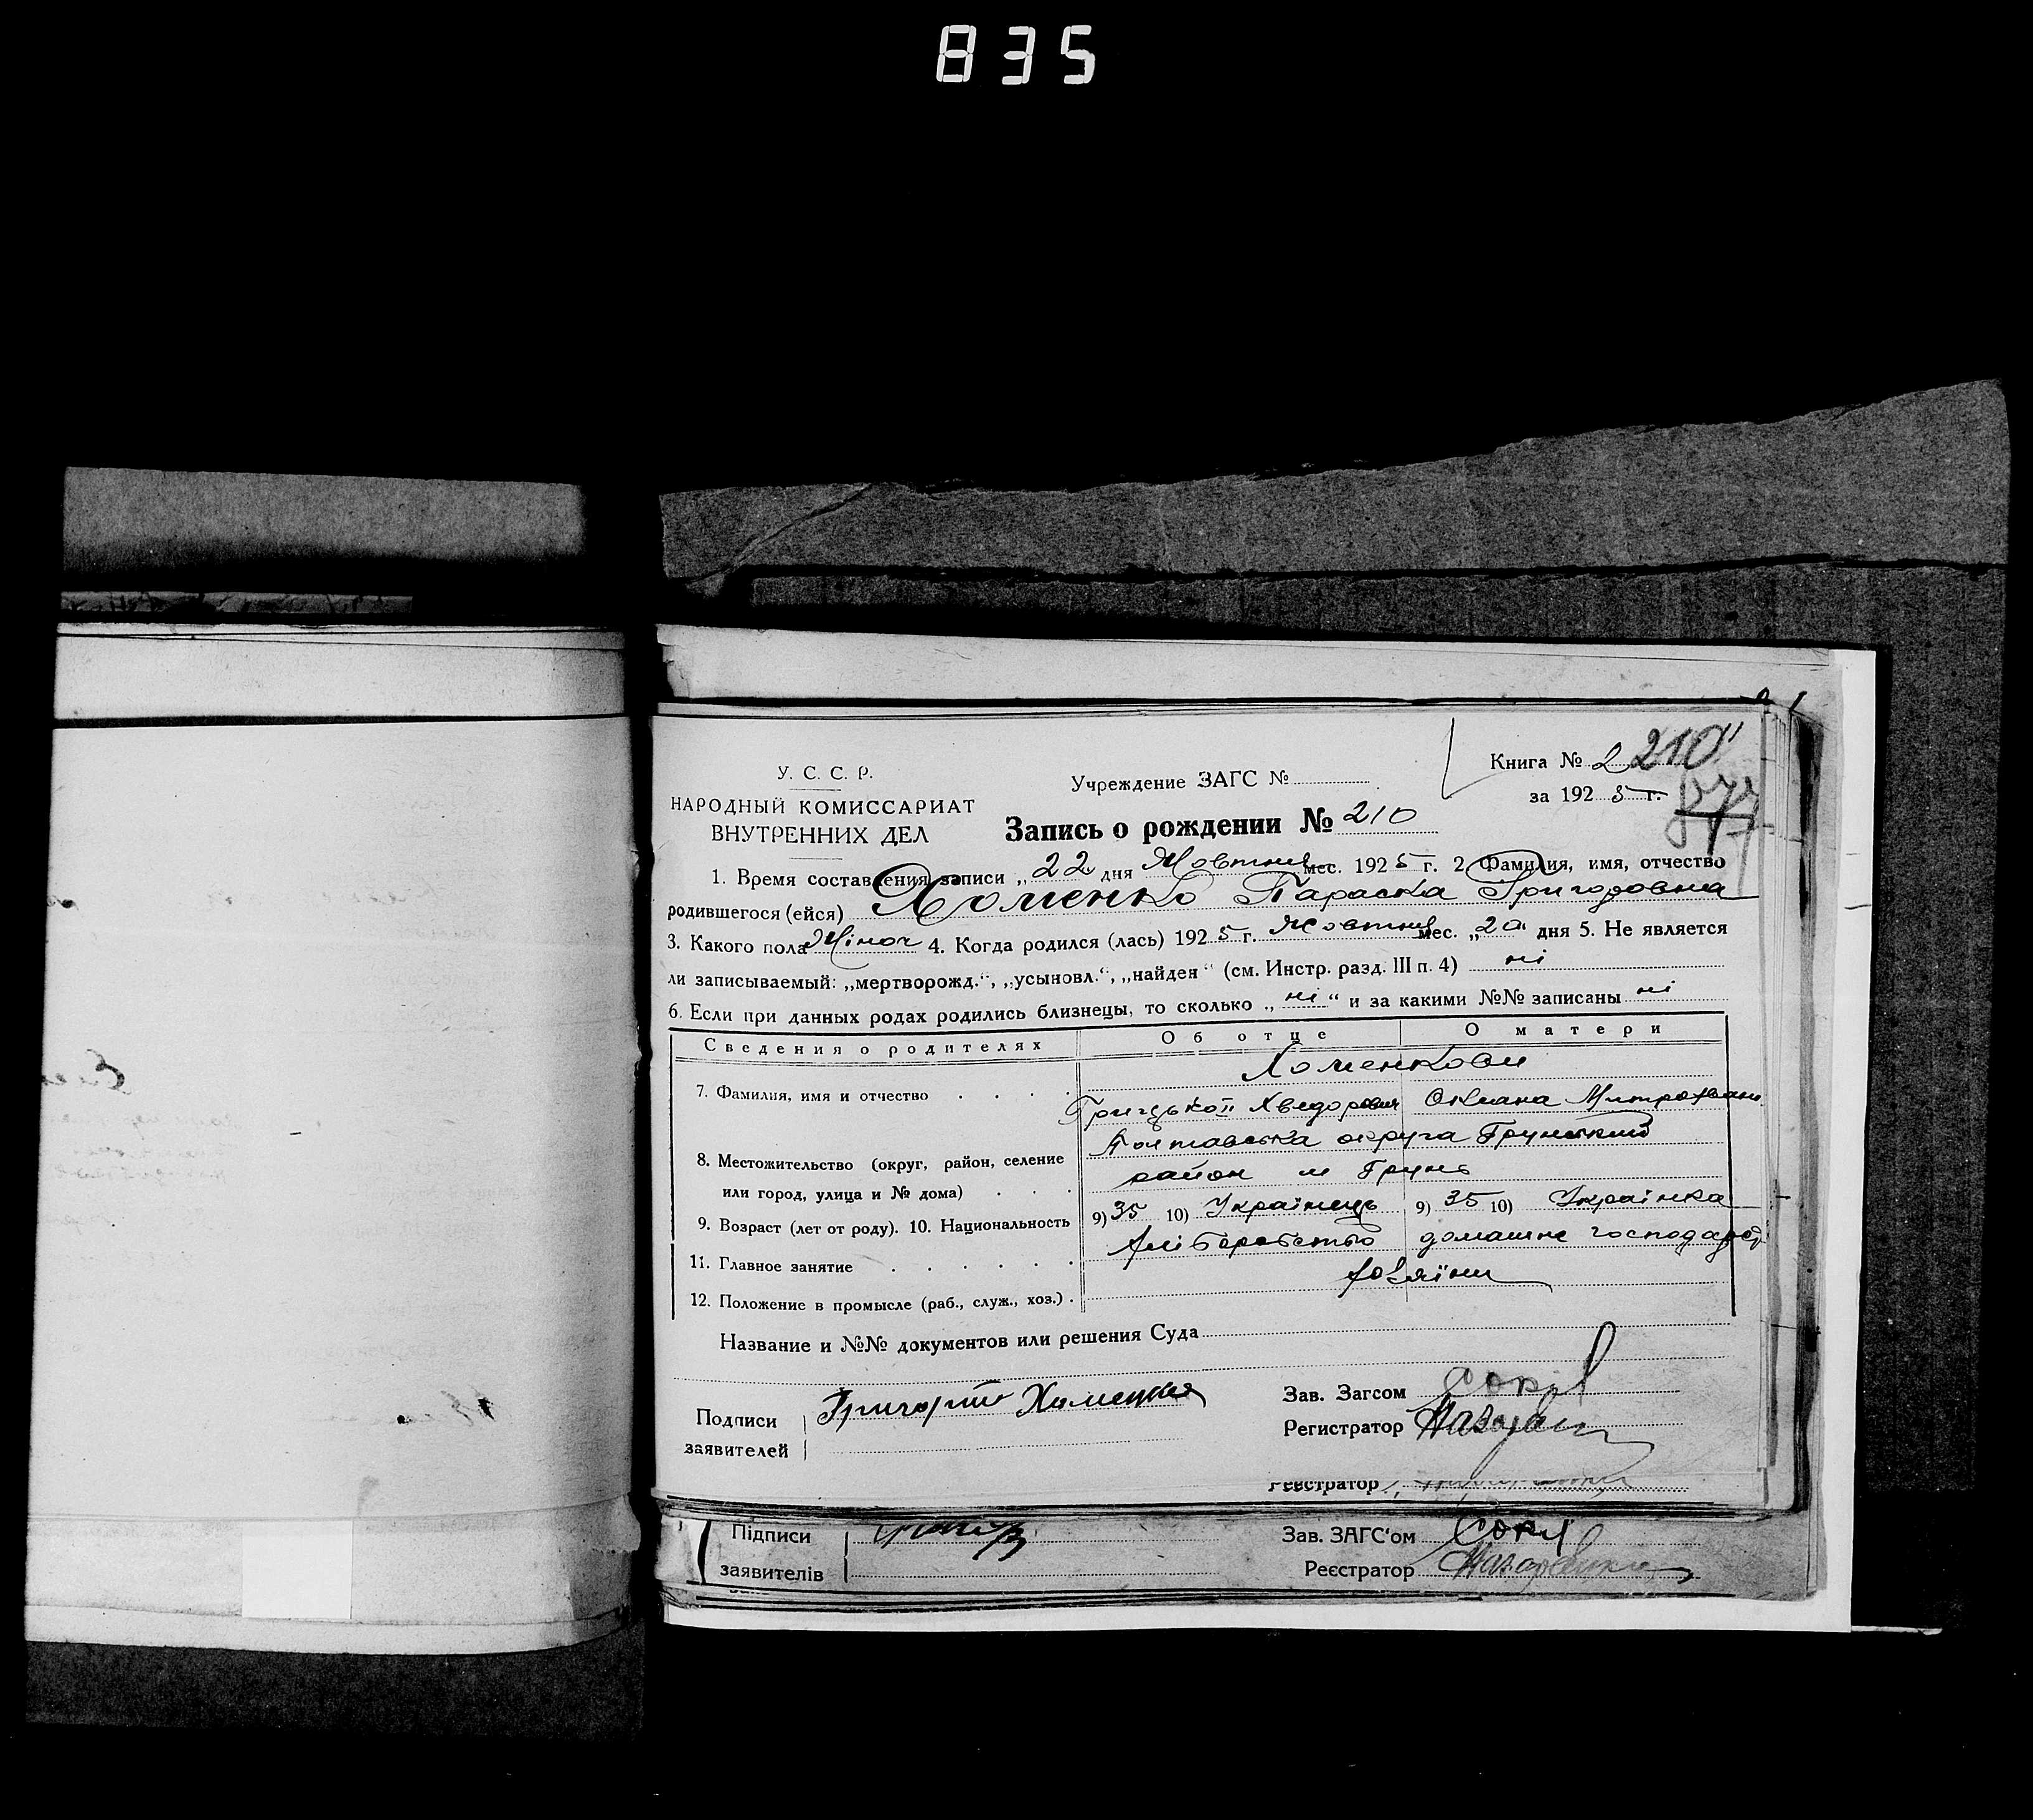 835
У. С. С. Р.
НАРОДНЫЙ КОМИССАРИАТ
ВНУТРЕННИХ ДЕЛ
Учреждение ЗАГС №
Книга № 2 210
за 192 5 г.
Запись о рождении № 210
1. Время составления записи „ 22 дня Жовтня мес. 192 5 г. 2 Фамилия, имя, отчество
родившегося (ейся) Хоменко Параска Григоровна
3. Какого пола Жіноч 4. Когда родился (лась) 192 5 г. Жовтня мес. „20“ дня 5. Не является
ли записываемый: „мертворожд.“, „усыновл.“, „найден“ (см. Инстр. разд. III п. 4) ні
6. Если при данных родах родились близнецы, то сколько „ ні “ и за какими №№ записаны ні
Сведения о родителях Об отце О матери
Хоменкови
7. Фамилия, имя и отчество
Грицько Хведорович Оксана Митрохван
Полтавська округа Грунський
8. Местожительство (округ, район, селение
или город, улица и № дома)
район м Грунь
9. Возраст (лет от роду). 10. Национальность 9) 35 10) Українець 9) 35 10) Українка
11. Главное занятие Хліборобство домашнє господарст
12. Положение в промысле (раб., служ., хоз.) хозяїни
Название и №№ документов или решения Суда
Подписи
заявителей
Григорій Хоменко
Зав. Загсом
Регистратор
Реєстратор
Підписи
заявителів
Зав. ЗАГС'ом
Реєстратор